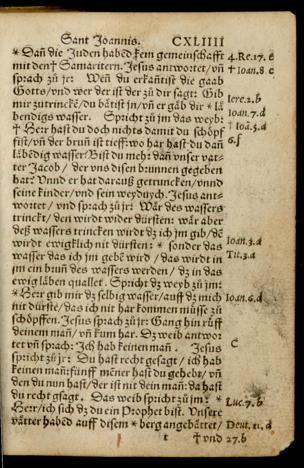 Sant Joannis. CXLIIII
* Dañ die Juden habẽd kein gemeinschafft 4.Re.17.e
mit den † Samaritern. Jesus antwortet/vñ † Ioan.8 c
sprach zů jr: Weñ du erkañtist die gaab
Gotts/vnd wer der ist der zů dir sagt: Gib
mir zutrincke/du bätist jn/vñ er gäb dir * lä Iere.2.b
bendigs wasser. Spricht zů jm das weyb: Ioan.7.d
† Herr hast du doch nichts damit du schöpf † Ioã.3.d
fist/vñ der bruñ ist tieff: wo har hast du dañ 6.f
läbẽdig wasser? Bist du mehr dañ vnser vat-
ter Jacob/ der vns disen brunnen gegeben
hat? Vnnd er hat darauß getruncken/vnnd
seine kinder/vnd sein weydvych. Jesus ant-
wortet/ vnd sprach zů jr: Wär des wassers
trinckt/den wirdt wider dürsten: wär aber
deß wassers trincken wirdt dz ich jm gib/dẽ
wirdt ewigklich nit dürsten: * sonder das Ioan.3.d
wasser das ich jm gebẽ wird /das wirdt in Tit.3.a
jm ein bruñ des wassers werden / dz in das
ewig läben quallet. Spricht dz weyb zů jm:
* Herr gib mir dz selbig wasser/auff dz mich Ioan.6.d
nit dürste/das ich nit har kommen müsse zů
schöpffen. Jesus sprach zů jr: Gang hin rüff
deinem mañ/vñ kum har. Dz weib antwor
tet vñ sprach: Ich hab keinen mañ. Jesus C
spricht zů jr: Du hast recht gesagt / ich hab
keinen mañ: fünff mẽner hast du gehebt/ vñ
den du nun hast/der ist nit dein mañ: da hast
du recht gesagt. Das weib spricht zů jm: * Luc.7.b
Herr/ich sich dz du ein Prophet bist. Unsere
vätter habẽd auff disem * berg angebättet/ Deut.11.d
t † vnd 27.b